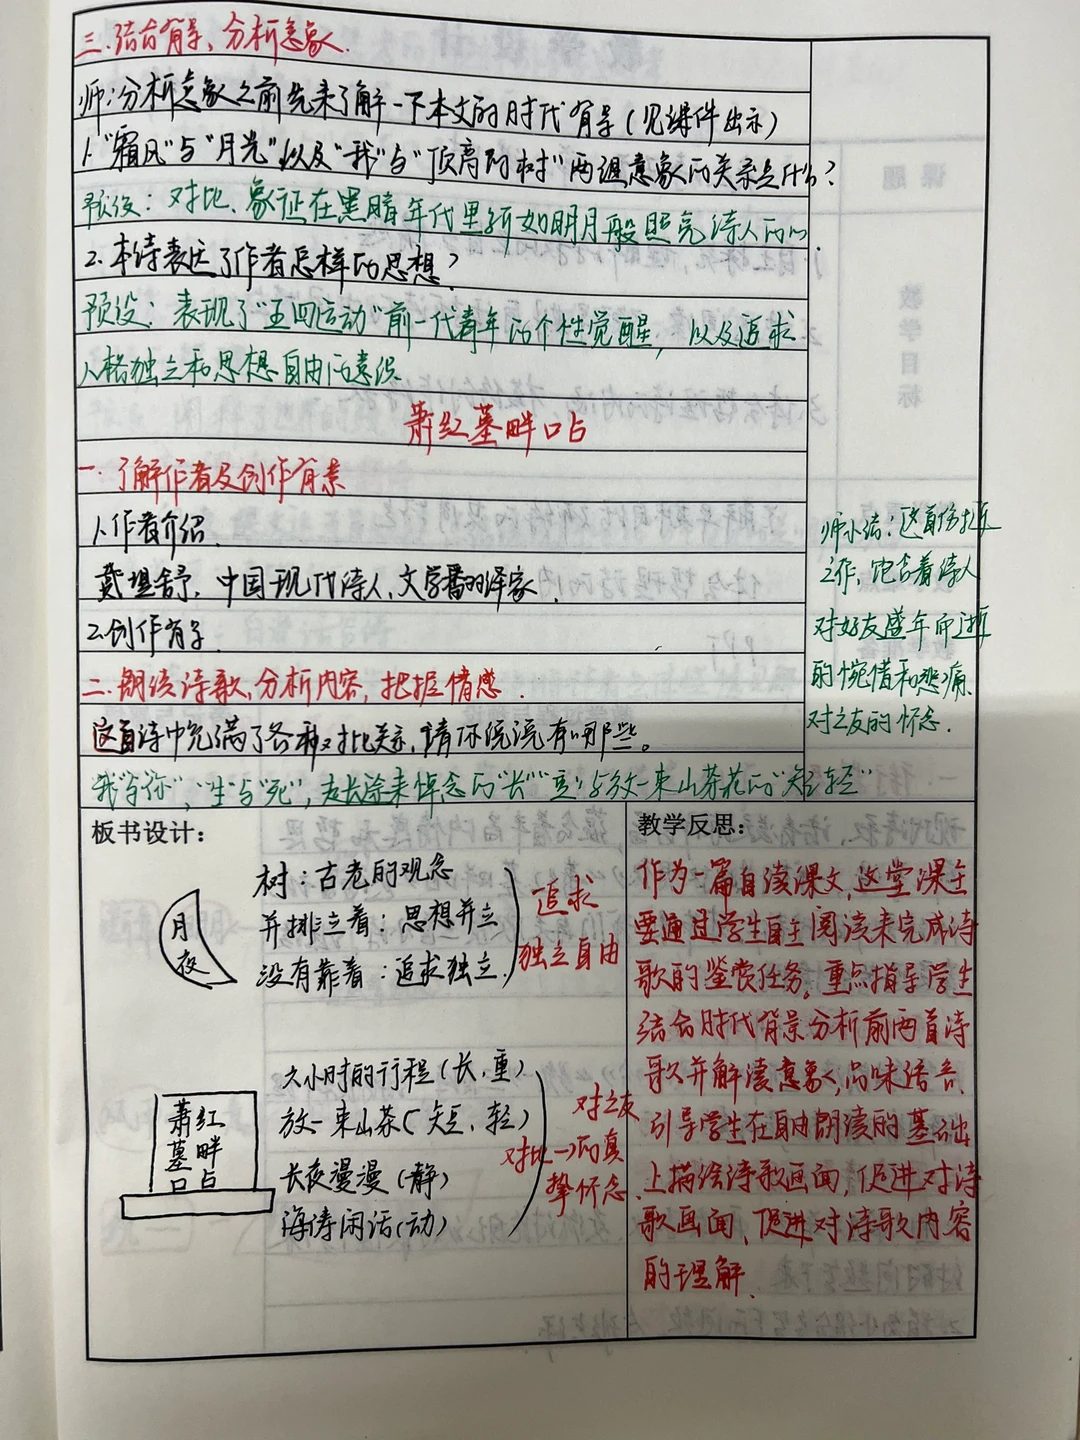 三.结合背景,分析意象.
师:分析意象之前先来了解一下本文的时代背景(见课件出示)
1."霜风"与"月光"以及"我"与"顶高的树"两组意象的关系是什么?
预设:对比、象征在黑暗年代里
如明月般照亮诗人的心
2.本诗表达了作者怎样的思想?
预设:表现了"五四运动"前一代青年的个性觉醒,以及追求
人格独立和思想自由的意识
萧红墓畔口占
一.了解作者及创作背景
1.作者介绍.
戴望舒,中国现代诗人、文学翻译家.
2.创作背景.
二.朗读诗歌,分析内容,把握情感.
这首诗中充满了各种对比关系,请你说说有哪些。
"我"与"你","生"与"死",走长途来悼念的"长""重"与放一束山茶花的"短""轻"
师小结:这首伤挽
之作,饱含着诗人
对好友盛年而逝
的惋惜和悲痛,
对文友的怀念.
板书设计:
月夜
树:古老的观念
并排立着:思想并立
没有靠着:追求独立.
追求
独立自由
萧红
墓畔
口占
六小时的行程(长,重)
放一束山茶(短,轻)
长夜漫漫(静)
海涛闲话(动)
对比→
对文友
的真
挚怀念.
教学反思:
作为一篇自读课文,这堂课主
要通过学生自主阅读来完成诗
歌的鉴赏任务,重点指导学生
结合时代背景分析前两首诗
歌并解读意象,品味语言.
引导学生在自由朗读的基础
上描绘诗歌画面,促进对诗
歌画面,促进对诗歌内容
的理解.